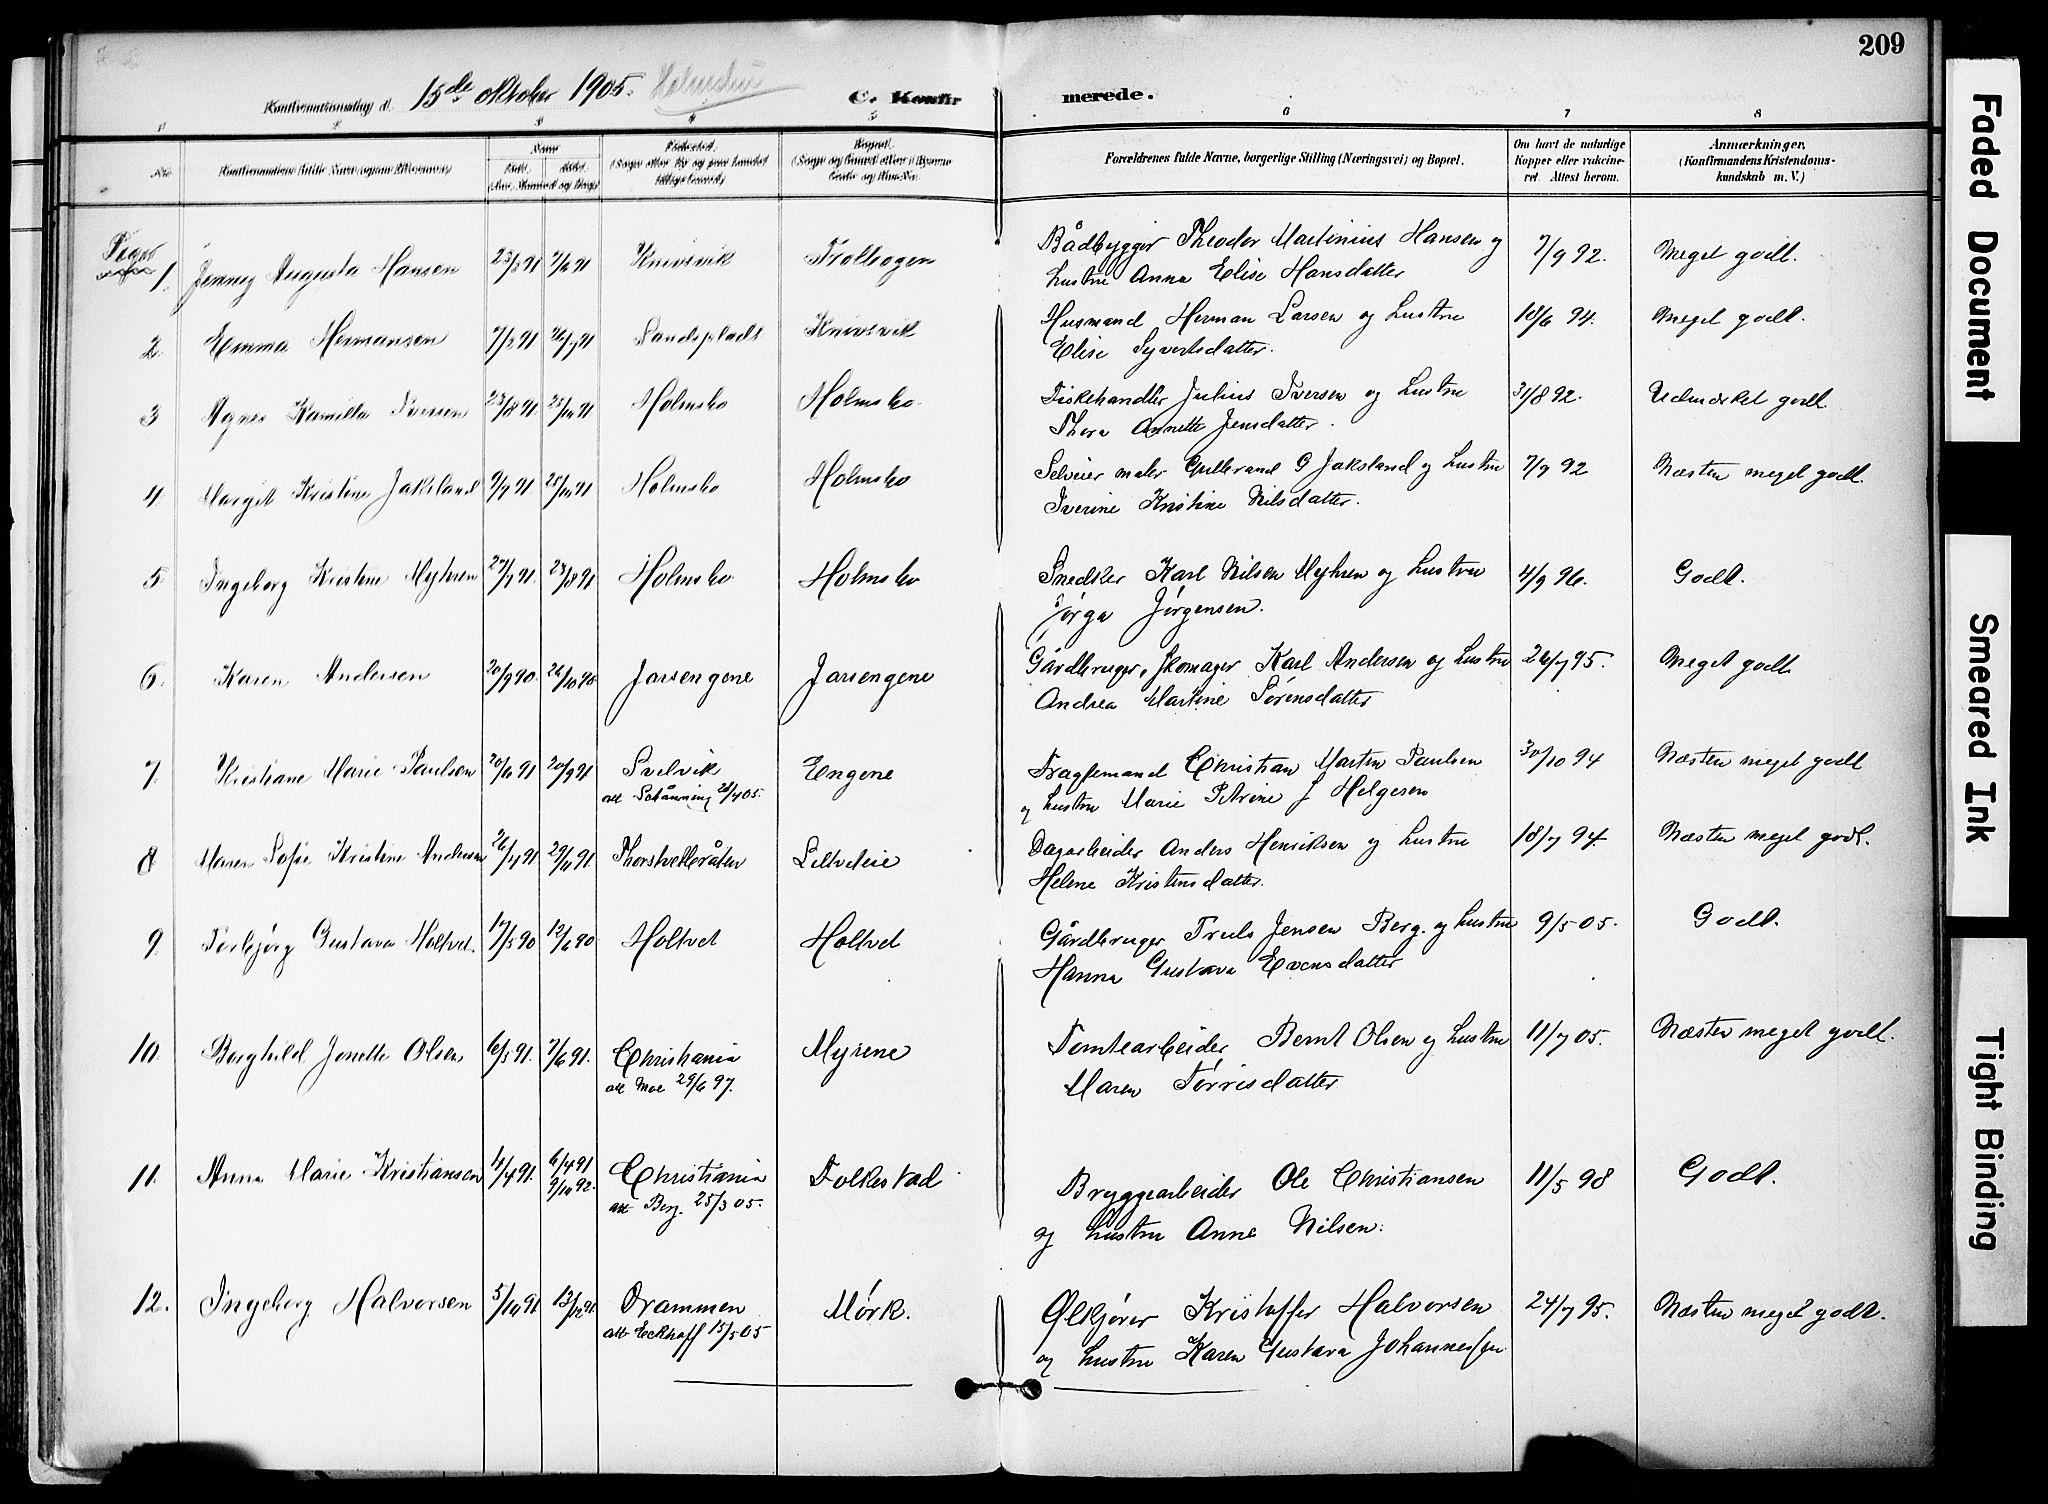 209
Konfirmationsdag d. 15de oktober 1905. Holmsbu
C. Konfirmerede.
1 2 3 4 5 6 7 8
No. Konfirmandens fulde Navn (ogsaa Efternavn). Naar født. døbt. (Aar, Maaned og Dag). Fødested. Bopæl. Forældrenes fulde Navne, borgerlige Stilling (Næringsvei) og Bopæl. Om havt de naturlige Kopper eller vakcineret. Attest herom. Anmærkninger. (Konfirmandens Kristendomskundskab m. V.)
Piger
1. Jenney Augusta Hansen 23/3 91 7/6 91 Knivsvik Trolhogen Bådbygger Theodor Martinius Hansen og 7/9 92. Meget godt.
hustru Anna Elise Hansdatter
2. Emma Hermansen 7/2 91 26/7 91 Sandsplads Knivsvik Husmand Herman Larsen og hustru 18/6 94. Meget godt.
Elise Syvertsdatter.
3 Agnes Kamilla Iversen 23/8 91 25/10 91 Holmsbo Holmsbo. Fiskehandler Julius Iversen og hustru 31/8 92. Udmerket godt
Thora Annette Jensdatter.
4. Margit Kristine Jaksland 9/9 91 25/10 91 Holmsbo Holmsbo Selveier maler Gulbrand G Jaksland og hustru 7/9 92 Næsten meget godt.
Iverine Kristine Nilsdatter.
5 Ingeborg Kristine Myhren 27/7 91. 23/8 91 Holmsbo Holmsbo Snedker Karl Nilsen Myhren og hustru 4/9 96. Godt.
Jørga Jørgensen.
6. Karen Andersen 20/9 90. 26/10 90. Jarsengene Jarsengene Gårdbruger, skomager Karl Andersen og hustru 26/7 95. Meget godt.
Andrea Martine Sørensdatter
7. Kristiane Marie Paulsen 20/6 91 20/9 91 Svelvik Engene Fragtemand Christian Morten Paulsen 30/10 94 Næsten meget godt
att Schånning 28/4 05. og hustru Marie Petrine J Helgesen
8 Maren Sofie Kristine Andersen 26/4 91 29/6 91. Thorstvetbråten Leltveteie Dagarbeider Anders Henriksen og hustru 18/7 94. Næsten meget godt.
Helene Kristensdatter.
9. Torbjørg Gustava Holtvet. 17/5 90 12/6 90 Holtvet Holtved Gårdbruger Truls Jensen Berg. og hustru 9/5 05. Godt.
Hanna Gustava Evensdatter
10. Borghild Jonette Olsen 6/5 91. 7/6 91. Christiania Myrene Tomtearbeider Bernt Olsen og hustru 11/7 05. Næsten meget godt.
att Moe 29/6 97. Maren Tørrisdatter
11. Anna Marie Kristiansen 4/4 91. 6/4 91 Christiania Folkestad Bryggearbeider Ole Christiansen 11/5 98 Godt.
9/10 92. att Berg. 25/3 05. og hustru Anne Nilsen.
12. Ingeborg Halvorsen 5/10 91. 13/12 91. Drammen Mörk. Ølkjører Kristoffer Halvorsen 24/7 95. Næsten meget godt.
att Eckhoff 15/5 05 og hustru Karen Gustava Johannessen
Faded Document
Smeared Ink
Tight Binding